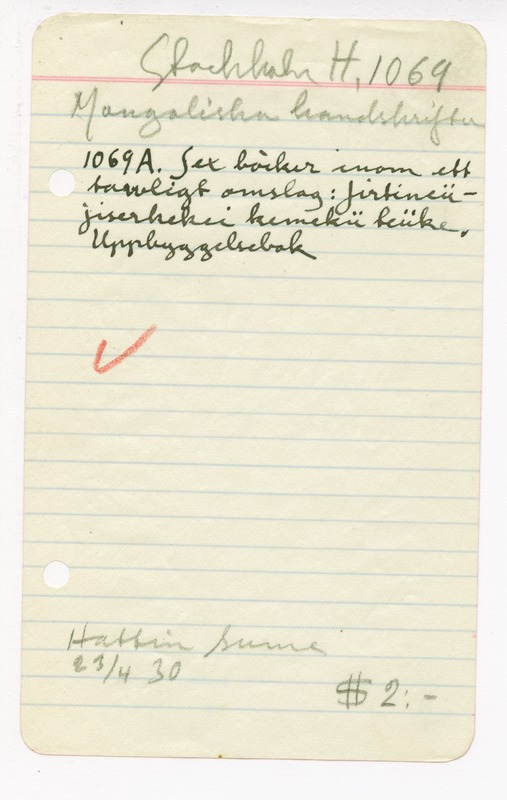 Stockholm H, 1069
Mongoliska handskrifter
1069A. Sex böcker inom ett
tarvligt omslag: jirtincü-
jiserkekei kemekü teüke.
Uppbyggelsebok
Hattin Sume
23/4 30
$ 2:-